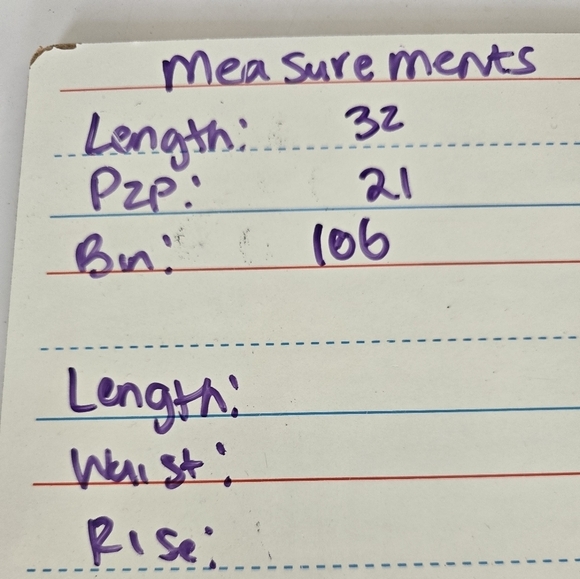 Measurements
Length: 32
P2P: 21
Bin: 106
Length:
Waist:
Rise: